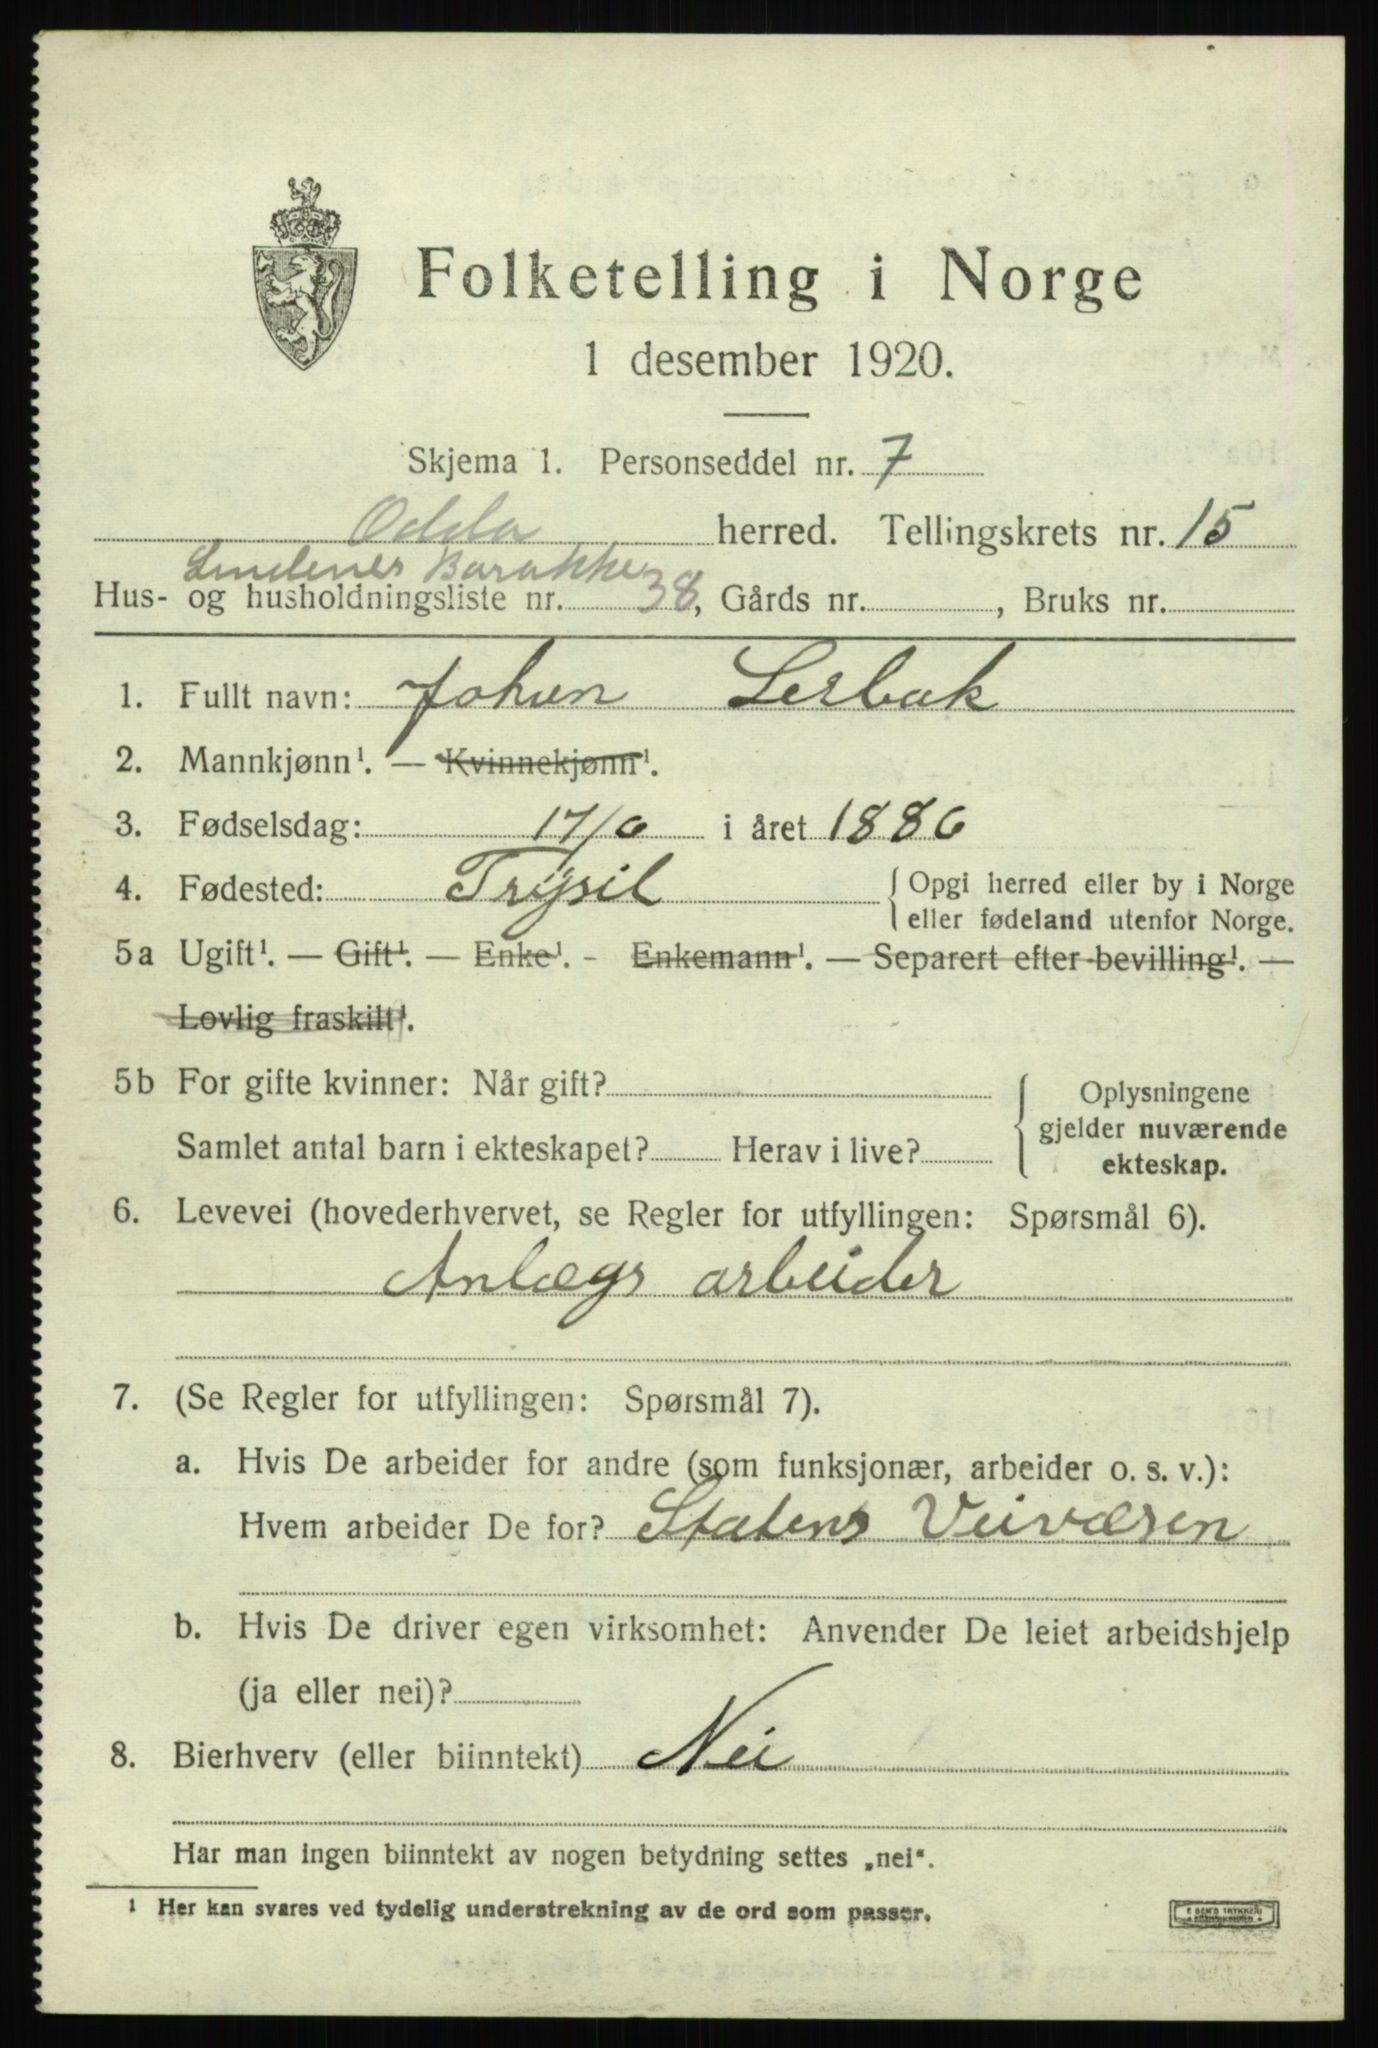 Folketelling i Norge
1 desember 1920.
Skjema 1. Personseddel nr. 7
Odda herred. Tellingskrets nr. 15
Barakke
Hus- og husholdningsliste nr. 38, Gårds nr. , Bruks nr.
1. Fullt navn: Johan Lerbak
2. Mannkjønn¹. — Kvinnekjønn¹.
3. Fødselsdag: 17/6 i året 1886
4. Fødested: Trysil { Opgi herred eller by i Norge
eller fødeland utenfor Norge.
5a Ugift¹. — Gift¹. — Enke¹. - Enkemann¹. — Separert efter bevilling¹. —
Lovlig fraskilt¹.
5b For gifte kvinner: Når gift? { Oplysningene
gjelder nuværende
Samlet antal barn i ekteskapet? Herav i live?
ekteskap.
6. Levevei (hovederhvervet, se Regler for utfyllingen: Spørsmål 6).
Anlægs arbeider
7. (Se Regler for utfyllingen: Spørsmål 7).
a. Hvis De arbeider for andre (som funksjonær, arbeider o. s. v.):
Hvem arbeider De for? Statens Veivæsen
b. Hvis De driver egen virksomhet: Anvender De leiet arbeidshjelp
(ja eller nei)?
8. Bierhverv (eller biinntekt) Nei
Har man ingen biinntekt av nogen betydning settes „nei“.
¹ Her kan svares ved tydelig understrekning av de ord som passer.